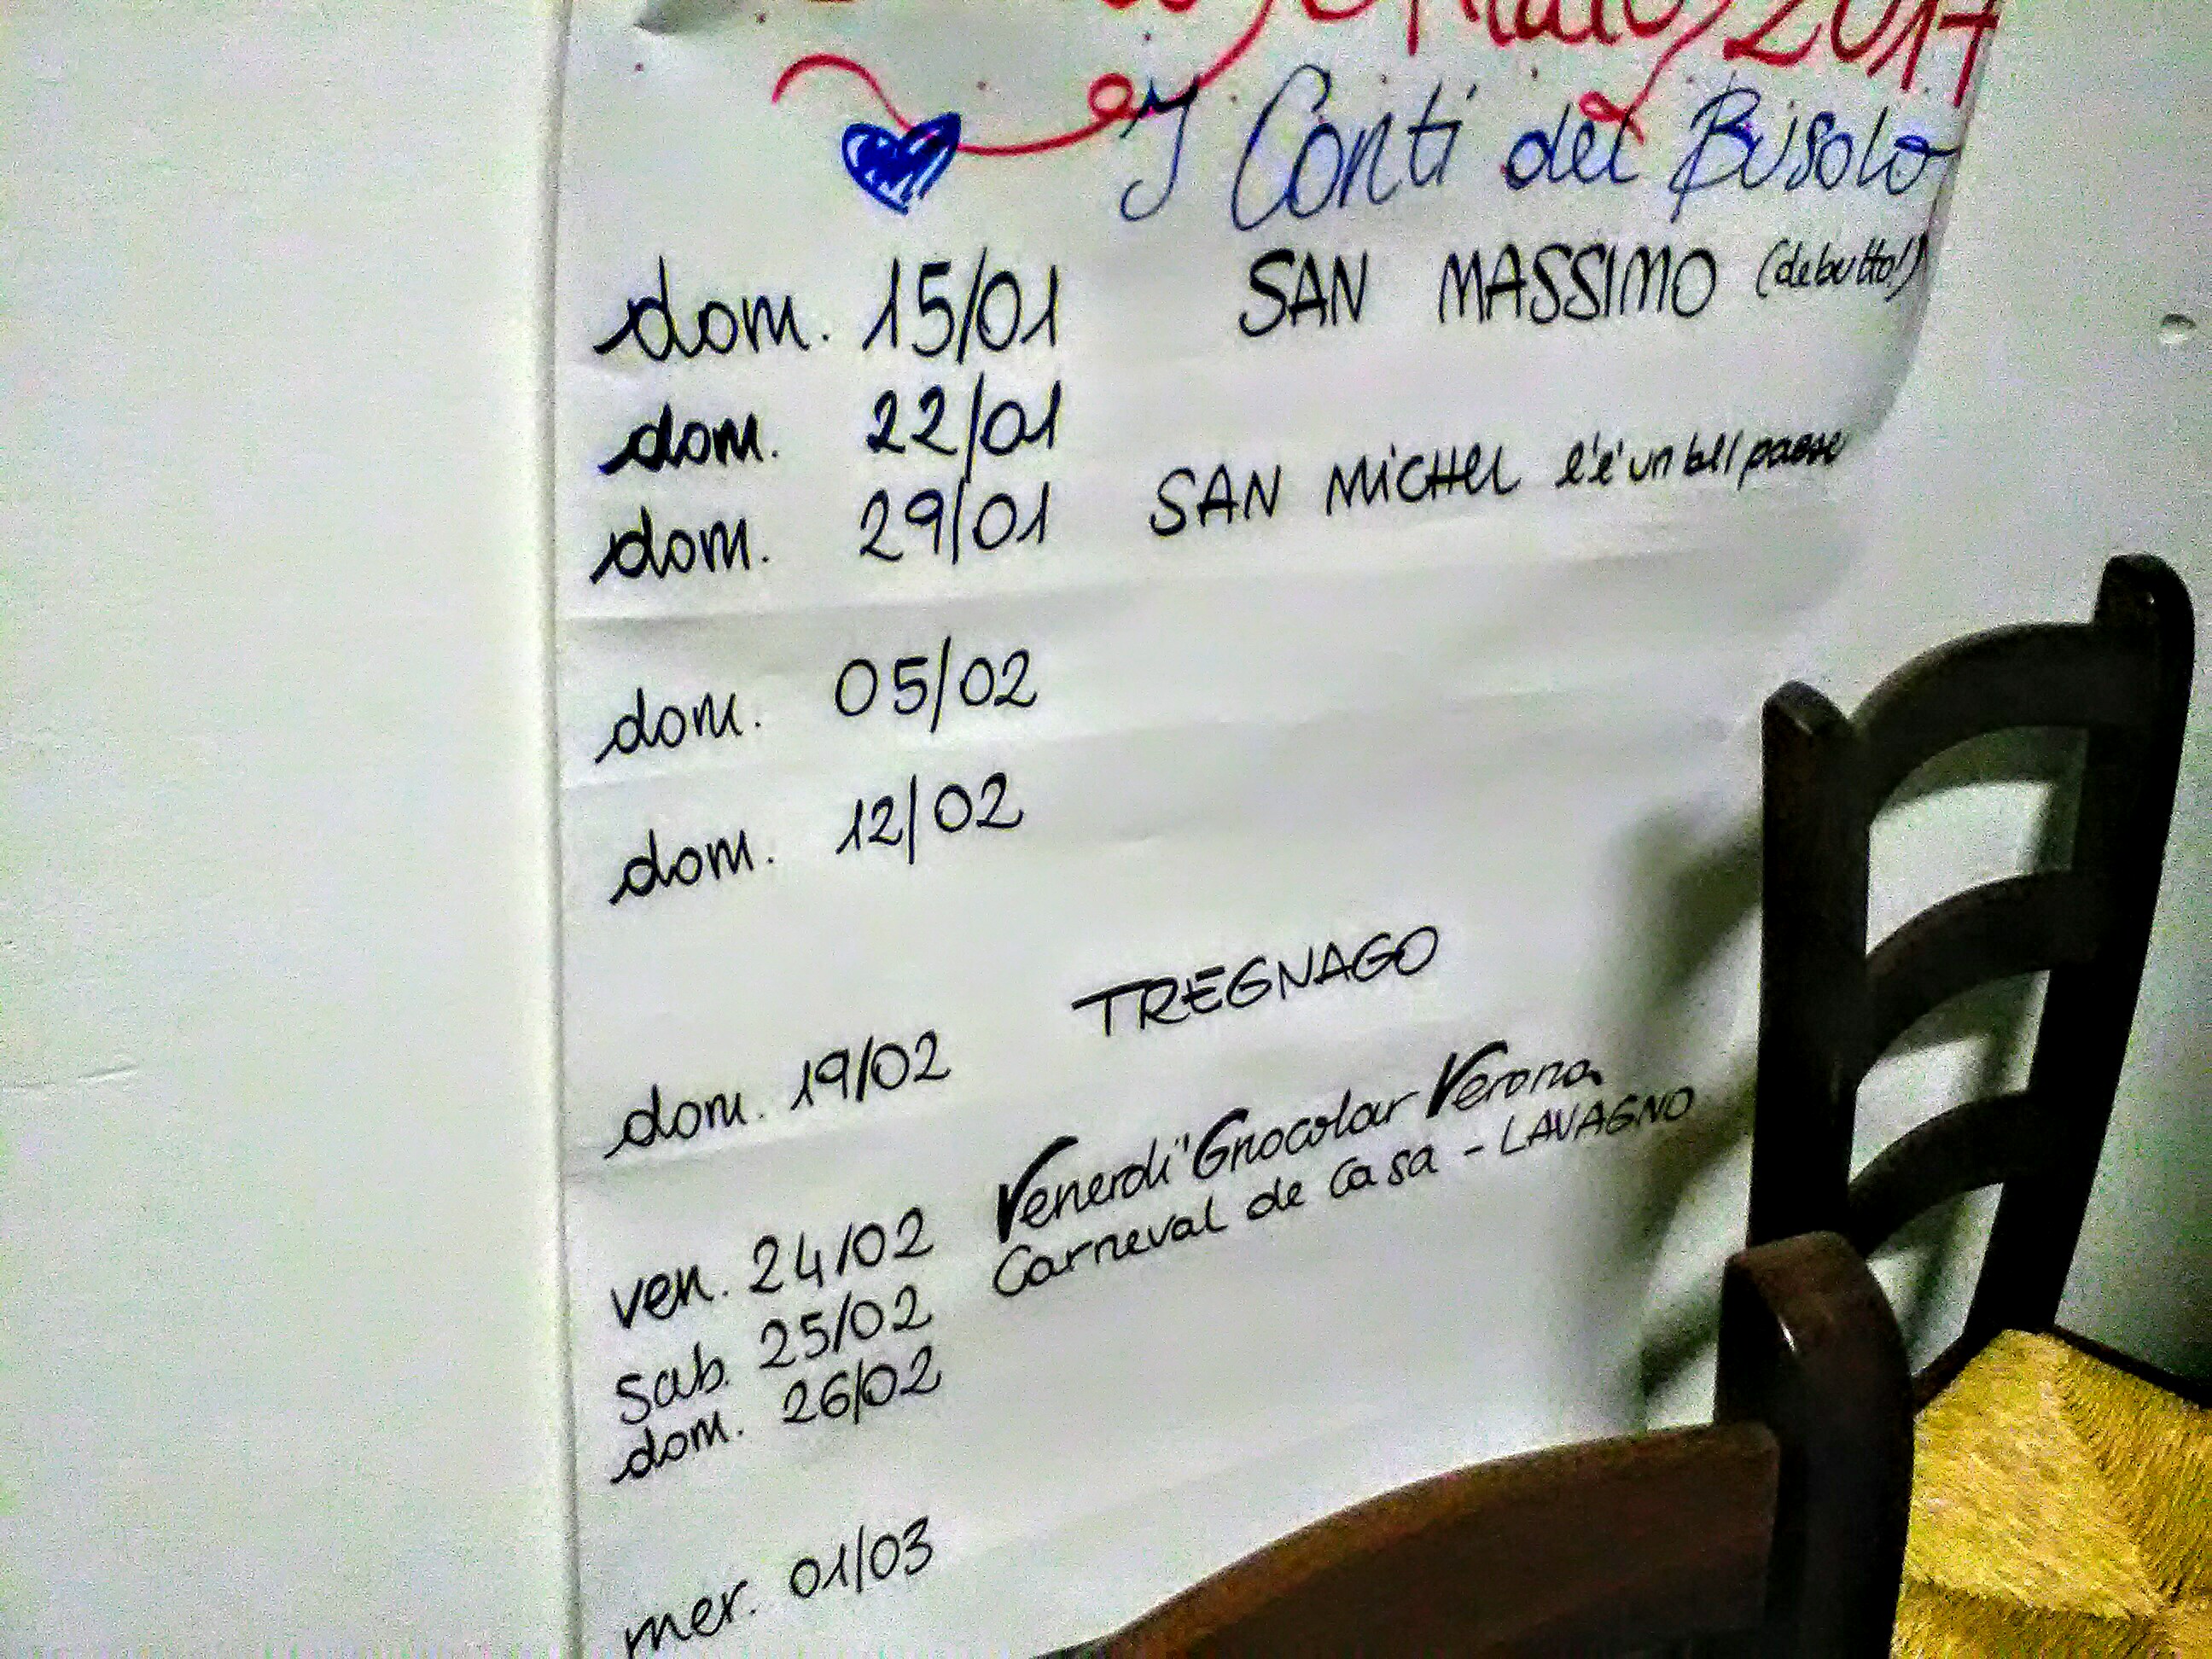 2017
I Conti del Busolo
dom. 15/01 SAN MASSIMO (debutto!)
dom. 22/01
dom. 29/01 SAN MICHEL l'è un bel paese
dom. 05/02
dom. 12/02
dom. 19/02 TREGNAGO
ven. 24/02 Venerdì Gnocolar Verona
sab. 25/02 Carneval de Casa - LAVAGNO
dom. 26/02
mer. 01/03